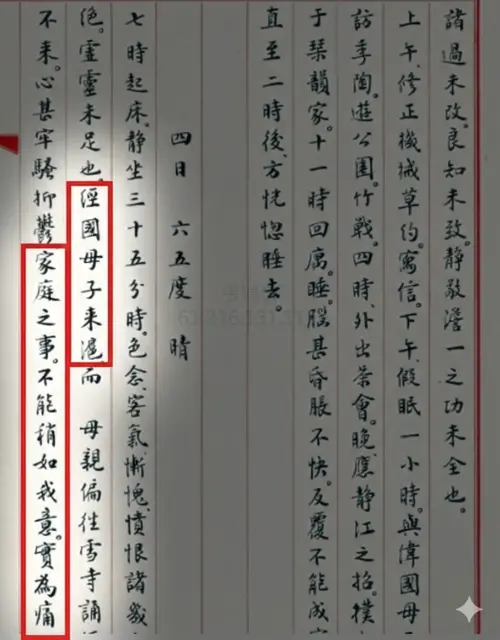 諸過未改。良知未致。靜敬澹一之功未全也。
上午、修正機械草約。寫信。下午、假眠一小時。與偉國母
訪季陶。遊公園。竹戰。四時、外出茶會。晚、應靜江之招。撲
于琴韻家。十一時回寓。睡。腦甚昏脹不快。反覆不能成
直至二時後、方恍惚睡去。
四日 六五度 晴
七時起床、靜坐三十五分時。色念、客氣慚愧、憤恨諸
絕。虛靈未足也。經國母子來滬、而 母親偏往雪寺誦
不來。心甚牢騷抑鬱。家庭之事。不能稍如我意。實為痛